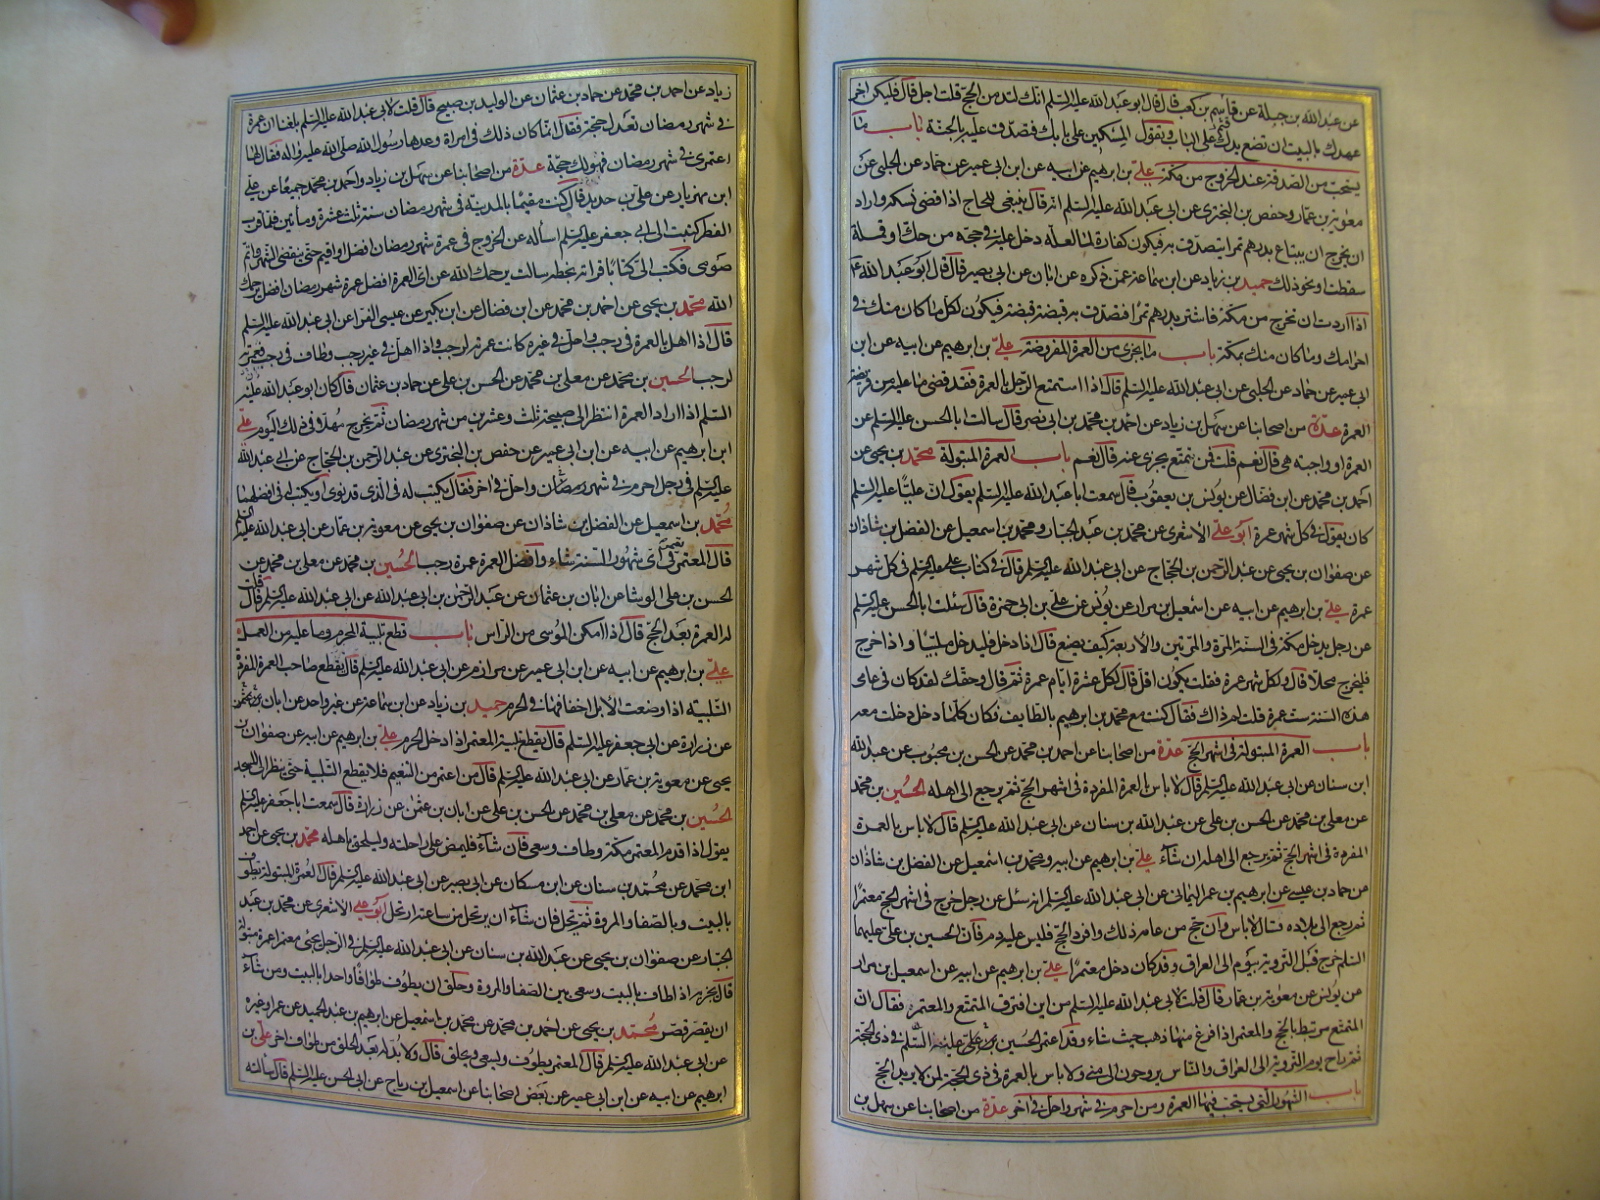 عن عبدالله بن جبلة عن قاسم بن كعب قال قال ابو عبدالله عليه السلم انك لتدمن الحج قلت اجل قال فليكن اخر
عهدك بالبيت ان تضع يدك على الباب وتقول المسكين على بابك فتصدق عليه بالجنة باب ما
يستحب من الصدقة عند الخروج من مكة علي بن ابرهيم عن ابيه عن ابن ابى عمير عن حماد عن الحلبى عن
معوية بن عمار وحفص بن البخترى عن ابى عبد الله عليه السلم انه قال ينبغى للحاج اذا قضى نسكه واراد
ان يخرج ان يبتاع بدرهم تمرا يتصدق به فيكون كفارة لما لعله دخل عليه فى حجه من حك او قملة
سقطت او نحو ذلك حميد بن زياد عن ابن سماعة عمن ذكره عن ابان عن ابى بصير قال قال ابو عبد الله ع
اذا اردت ان تخرج من مكة فاشتر بدرهم تمرا فتصدق به قبضة قبضة فيكون لكل ما كان منك فى
احرامك وما كان منك بمكة باب ما يجزى من العمرة المفروضة علي بن ابرهيم عن ابيه عن ابن
ابى عمير عن حماد عن الحلبى عن ابى عبدالله عليه السلم قال اذا استمتع الرجل بالعمرة فقد قضى ما عليه من فريضة
العمرة عدة من اصحابنا عن سهل بن زياد عن احمد بن محمد بن ابى نصر قال سالت ابا الحسن عليه السلم عن
العمرة او واجبة هى قال نعم قلت فمن تمتع يجزى عنه قال نعم باب العمرة المبتولة محمد بن يحيى عن
احمد بن محمد عن ابن فضال عن يونس بن يعقوب قال سمعت ابا عبد الله عليه السلم يقول ان عليا عليه السلم
كان يقول فى كل شهر عمرة ابو علي الاشعرى عن محمد بن عبد الجبار ومحمد بن اسمعيل عن الفضل بن شاذان
عن صفوان بن يحيى عن عبد الرحمن بن الحجاج عن ابى عبد الله عليه السلم قال فى كتاب على عليه السلم فى كل شهر
عمرة علي بن ابرهيم عن ابيه عن اسمعيل بن مرار عن يونس عن على بن ابى حمزة قال سئلت ابا الحسن عليه السلم
عن رجل يدخل مكة فى السنة المرة والمرتين والاربعة كيف يصنع قال اذا دخل فليدخل ملبيا واذا خرج
فليخرج محلا قال ولكل شهر عمرة فقلت يكون اقل قال لكل عشرة ايام عمرة ثم قال وحقك لقد كان فى عامى
هذه السنة ست عمرة قلت لم ذاك فقال كنت مع محمد بن ابرهيم بالطايف فكان كلما دخل دخلت معه
باب العمرة المبتولة فى اشهر الحج عدة من اصحابنا عن احمد بن محمد عن الحسن بن محبوب عن عبد الله
ابن سنان عن ابى عبد الله عليه السلم قال لا باس بالعمرة المفردة فى اشهر الحج ثم يرجع الى اهله الحسين بن محمد
عن معلى بن محمد عن الحسن بن على عن عبد الله بن سنان عن ابى عبد الله عليه السلم قال لا باس بالعمرة
المفردة فى اشهر الحج ثم يرجع الى اهله ان شاء علي بن ابرهيم عن ابيه ومحمد بن اسمعيل عن الفضل بن شاذان
عن حماد بن عيسى عن ابرهيم بن عمر اليمانى عن ابى عبد الله عليه السلم انه سئل عن رجل خرج فى اشهر الحج معتمرا
ثم رجع الى بلاده قال لا باس وان حج من عامه ذلك وافرد الحج فليس عليه دم فان الحسين بن على عليهما
السلم خرج قبل التروية بيوم الى العراق وقد كان دخل معتمرا علي بن ابرهيم عن ابيه عن اسمعيل بن مرار
عن يونس عن معوية بن عمار قال قلت لابى عبد الله عليه السلم من اين افترق المتمتع والمعتمر فقال ان
المتمتع مرتبط بالحج والمعتمر اذا فرغ منها ذهب حيث شاء وقد اعتمر الحسين بن على عليه السلم فى ذى الحجة
ثم راح يوم التروية الى العراق والناس يروحون الى منى ولا باس بالعمرة فى ذى الحجة لمن لا يريد الحج
باب الشهور التى يستحب فيها العمرة ومن احرم فى شهر واحل فى اخر عدة من اصحابنا عن سهل بن
زياد عن احمد بن محمد عن حماد بن عثمان عن الوليد بن صبيح قال قلت لابى عبد الله عليه السلم بلغنا ان عمرة
فى شهر رمضان تعدل حجة فقال انما كان ذلك فى امراة وعدها رسول الله صلى الله عليه واله فقال لها
اعتمرى فى شهر رمضان فهو لك حجة عدة من اصحابنا عن سهل بن زياد واحمد بن محمد جميعا عن علي
ابن مهزيار عن على بن حديد قال كنت مقيما بالمدينة فى شهر رمضان سنة ثلث عشرة ومأتين فلما قرب
الفطر كتبت الى ابى جعفر عليه السلم اساله عن الخروج فى عمرة شهر رمضان افضل او اقيم حتى ينقضى الشهر واتم
صومى فكتب الى كتابا قراته بخطه سالت يرحمك الله عن اى العمرة افضل عمرة شهر رمضان افضل يرحمك
الله محمد بن يحيى عن احمد بن محمد عن ابن فضال عن ابن بكير عن عيسى الفرا عن ابى عبد الله عليه السلم
قال اذا اهل بالعمرة فى رجب واحل فى غيره كانت عمرته لرجب واذا اهل فى غير رجب وطاف فى رجب فعمرته
لرجب الحسين بن محمد عن معلى بن محمد عن الحسن بن على عن حماد بن عثمان قال كان ابو عبد الله عليه
السلم اذا اراد العمرة انتظر الى صبيحة ثلث وعشرين من شهر رمضان ثم يخرج مهلا فى ذلك اليوم علي
ابن ابرهيم عن ابيه عن ابن ابى عمير عن حفص بن البخترى عن عبد الرحمن بن الحجاج عن ابى عبد الله
عليه السلم فى رجل احرم فى شهر رمضان واحل فى اخر فقال يكتب له فى الذى قد نوى او يكتب له فى افضلهما
محمد بن اسمعيل عن الفضل بن شاذان عن صفوان بن يحيى عن معوية بن عمار عن ابى عبد الله عليه السلم
قال المعتمر يعتمر فى اى شهور السنة شاء وافضل العمرة عمرة رجب الحسين بن محمد عن معلى بن محمد عن
الحسن بن على الوشا عن ابان بن عثمان عن عبد الرحمن بن ابى عبد الله عن ابى عبد الله عليه السلم قال قلت
له العمرة بعد الحج قال اذا امكن الموسى من الراس باب قطع تلبية المحرم وما عليه من العمل
علي بن ابرهيم عن ابيه عن ابن ابى عمير عن مرازم عن ابى عبد الله عليه السلم قال يقطع صاحب العمرة المفردة
التلبية اذا وضعت الابل اخفافها فى الحرم حميد بن زياد عن ابن سماعة عن غير واحد عن ابان بن عثمن
عن زرارة عن ابى جعفر عليه السلم قال يقطع تلبية المعتمر اذا دخل الحرم علي بن ابرهيم عن ابيه عن صفوان بن
يحيى عن معوية بن عمار عن ابى عبد الله عليه السلم قال من اعتمر من التنعيم فلا يقطع التلبية حتى ينظر الى المسجد
الحسين بن محمد عن معلى بن محمد عن الحسن بن على عن ابان بن عثمن عن زرارة قال سمعت ابا جعفر عليه السلم
يقول اذا قدم المعتمر مكة وطاف وسعى فان شاء فليمض على راحلته وليلحق باهله محمد بن يحيى عن احمد
ابن محمد عن محمد بن سنان عن ابن مسكان عن ابى بصير عن ابى عبد الله عليه السلم قال العمرة المبتولة يطوف
بالبيت وبالصفا والمروة ثم يحل فان شاء ان يرتحل من ساعته ارتحل ابو علي الاشعرى عن محمد بن عبد
الجبار عن صفوان بن يحيى عن عبد الله بن سنان عن ابى عبد الله عليه السلم فى الرجل يجئى معتمرا عمرة مبتولة
قال يجزيه اذا طاف بالبيت وسعى بين الصفا والمروة وحلق ان يطوف طوافا واحدا بالبيت ومن شاء
ان يقصر قصر محمد بن يحيى عن احمد بن محمد عن محمد بن اسمعيل عن ابرهيم بن عبد الحميد عن عمر او غيره
عن ابى عبد الله عليه السلم قال المعتمر يطوف ويسعى ويحلق قال ولا بد له بعد الحلق من طواف اخر علي بن
ابرهيم عن ابيه عن ابن ابى عمير عن بعض اصحابنا عن اسمعيل بن رياح عن ابى الحسن عليه السلم قال سالته